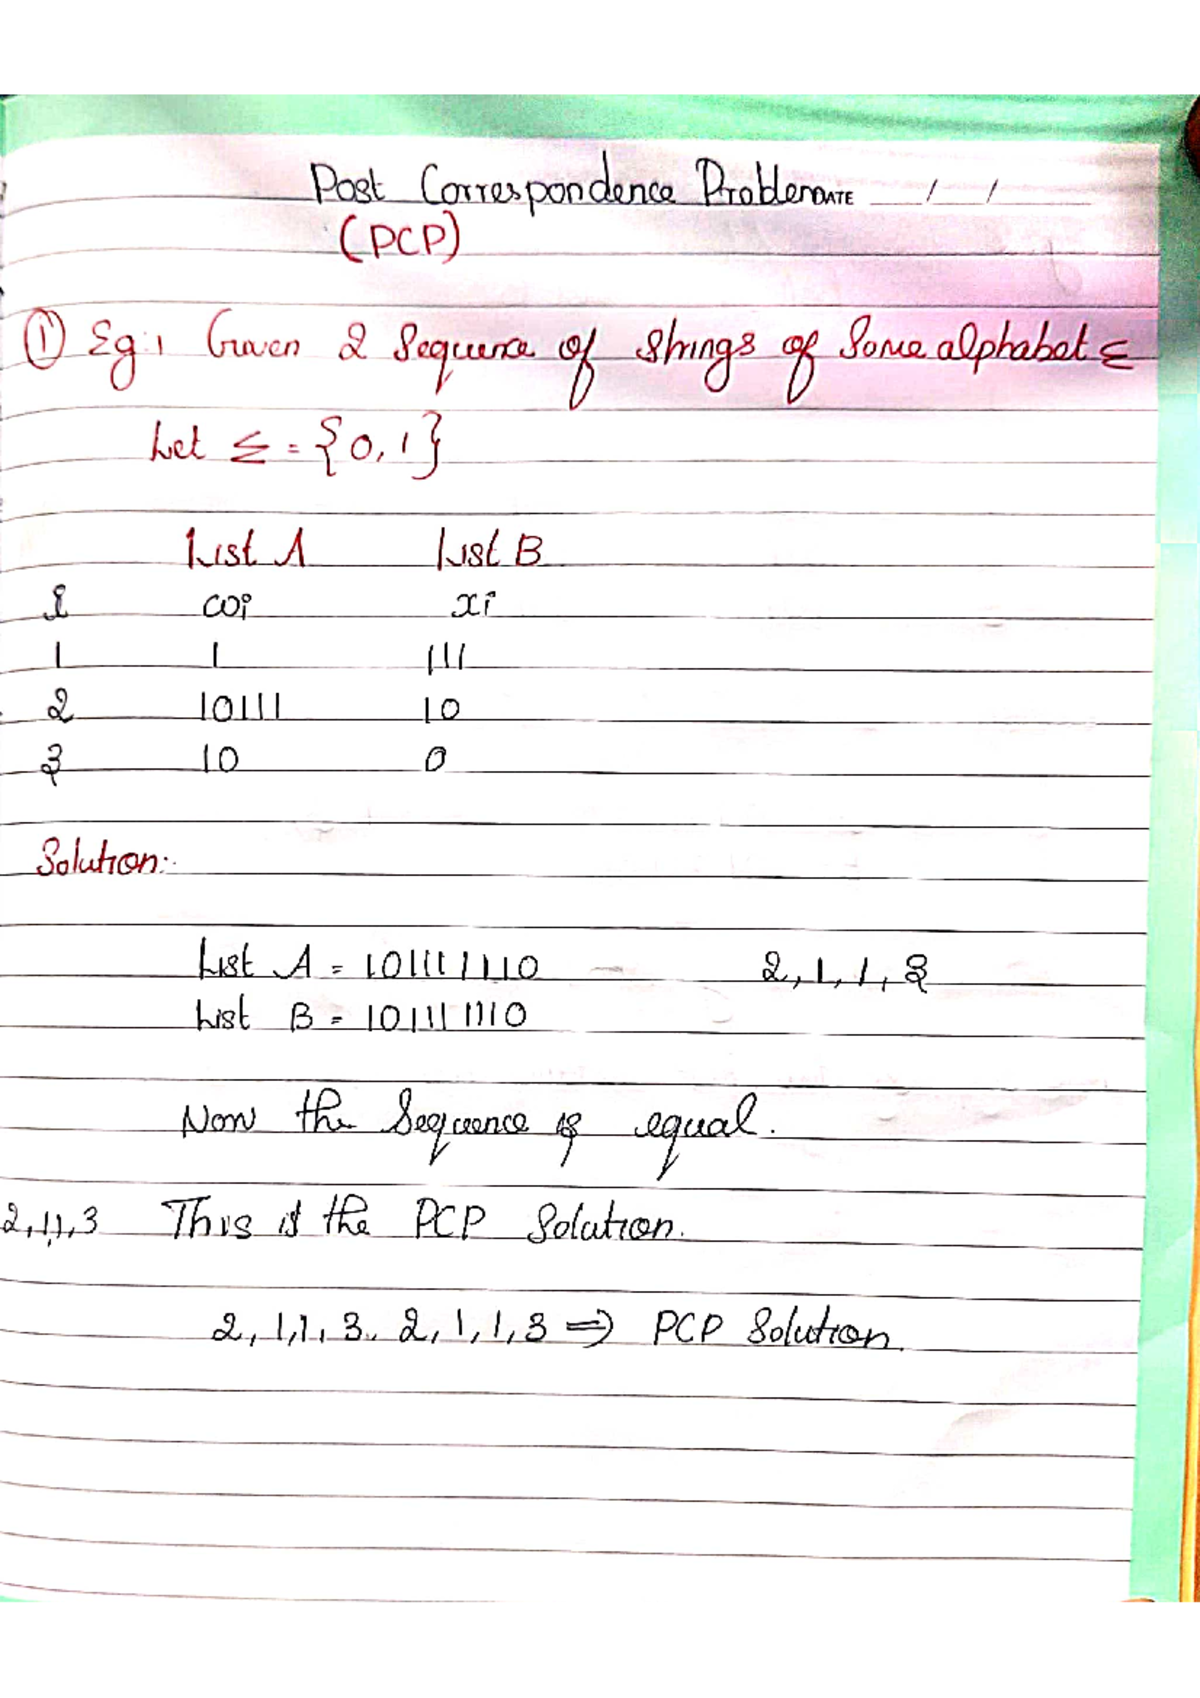 Post Correspondence Problem DATE / /
(PCP)
① Eg:1 Given 2 Sequence of Strings of Some alphabet Σ
Let Σ = {0, 1}
List A List B
i wi xi
1 1 111
2 10111 10
3 10 0
Solution:-
List A = 101111110 2, 1, 1, 3
List B = 101111110
Now the Sequence is equal.
2,1,1,3 This is the PCP Solution.
2, 1,1, 3. 2, 1, 1, 3 ⇒ PCP Solution.